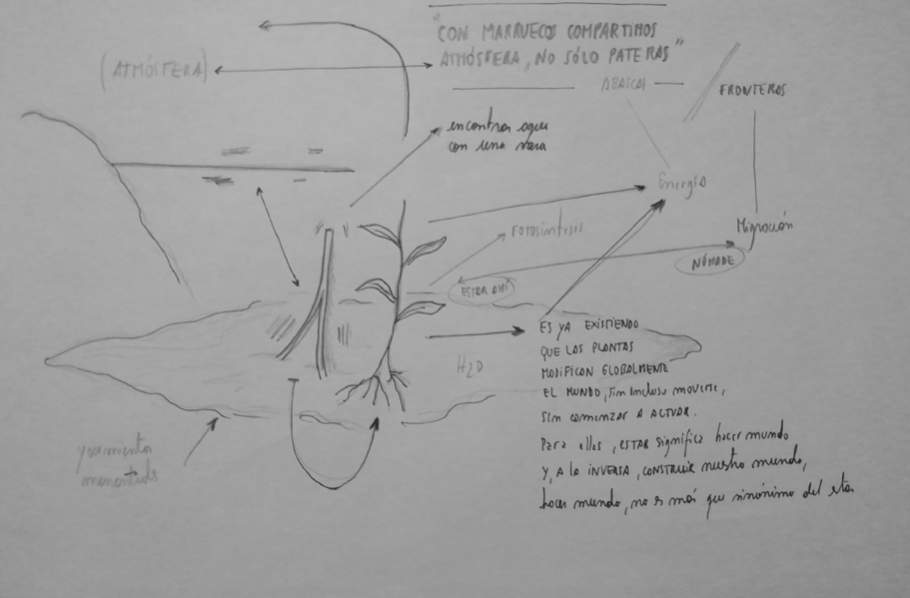 "CON MARRUECOS COMPARTIMOS
ATMÓSFERA, NO SÓLO PATERAS"
(ATMÓSFERA)
ABASCAL
FRONTERAS
encontrar agua
con una vara
Energía
FOTOSÍNTESIS
Migración
NÓMADE
ESTAR AHÍ
H2O
ES YA EXISTIENDO
QUE LAS PLANTAS
MODIFICAN GLOBALMENTE
EL MUNDO, sin incluso moverse,
sin comenzar A ACTUAR.
Para ellas, ESTAR significa hacer mundo
Y, A LA INVERSA, CONSTRUIR nuestro mundo,
hacer mundo, no es más que sinónimo del
yacimientos